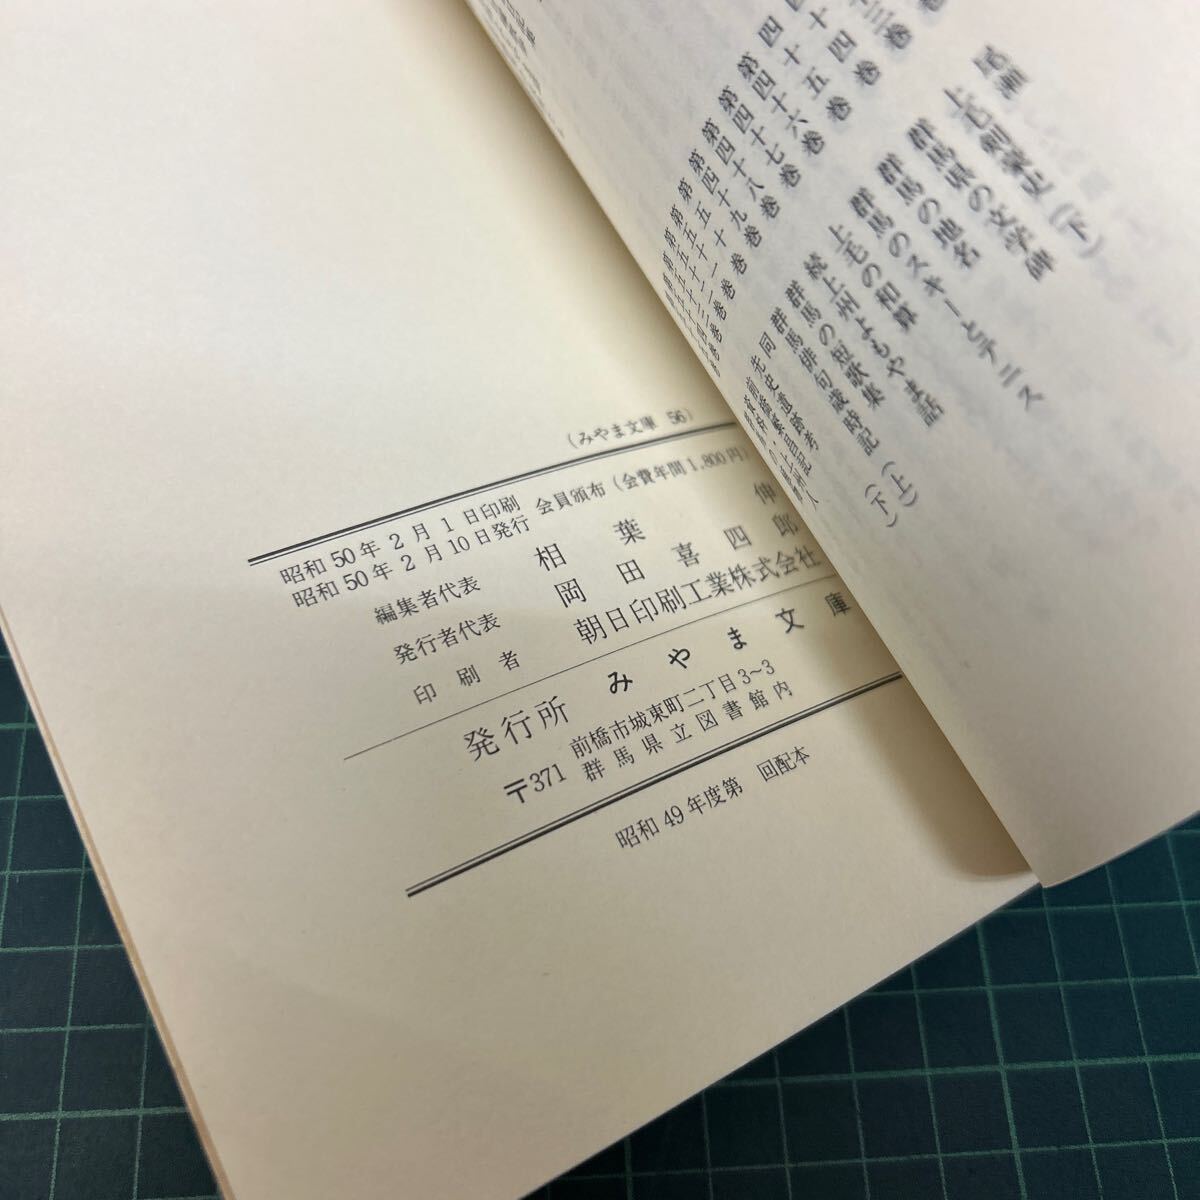 尾瀬
上毛剣客史（下）
群馬県の文学碑
群馬の地名
群馬のスキーとテニス
上毛の和算
続上州よもやま話
群馬の短歌集
群馬俳句歳時記（上）
同（下）
先史遺跡考
第四十四巻
第四十五巻
第四十六巻
第四十七巻
第四十八巻
第四十九巻
（みやま文庫 56）
昭和50年2月1日印刷
昭和50年2月10日発行
会員頒布（会費年間1,800円）
編集者代表 相葉伸
発行者代表 岡田喜四郎
印刷者 朝日印刷工業株式会社
発行所 みやま文庫
〒371 前橋市城東町二丁目3〜3
群馬県立図書館内
昭和49年度第 回配本